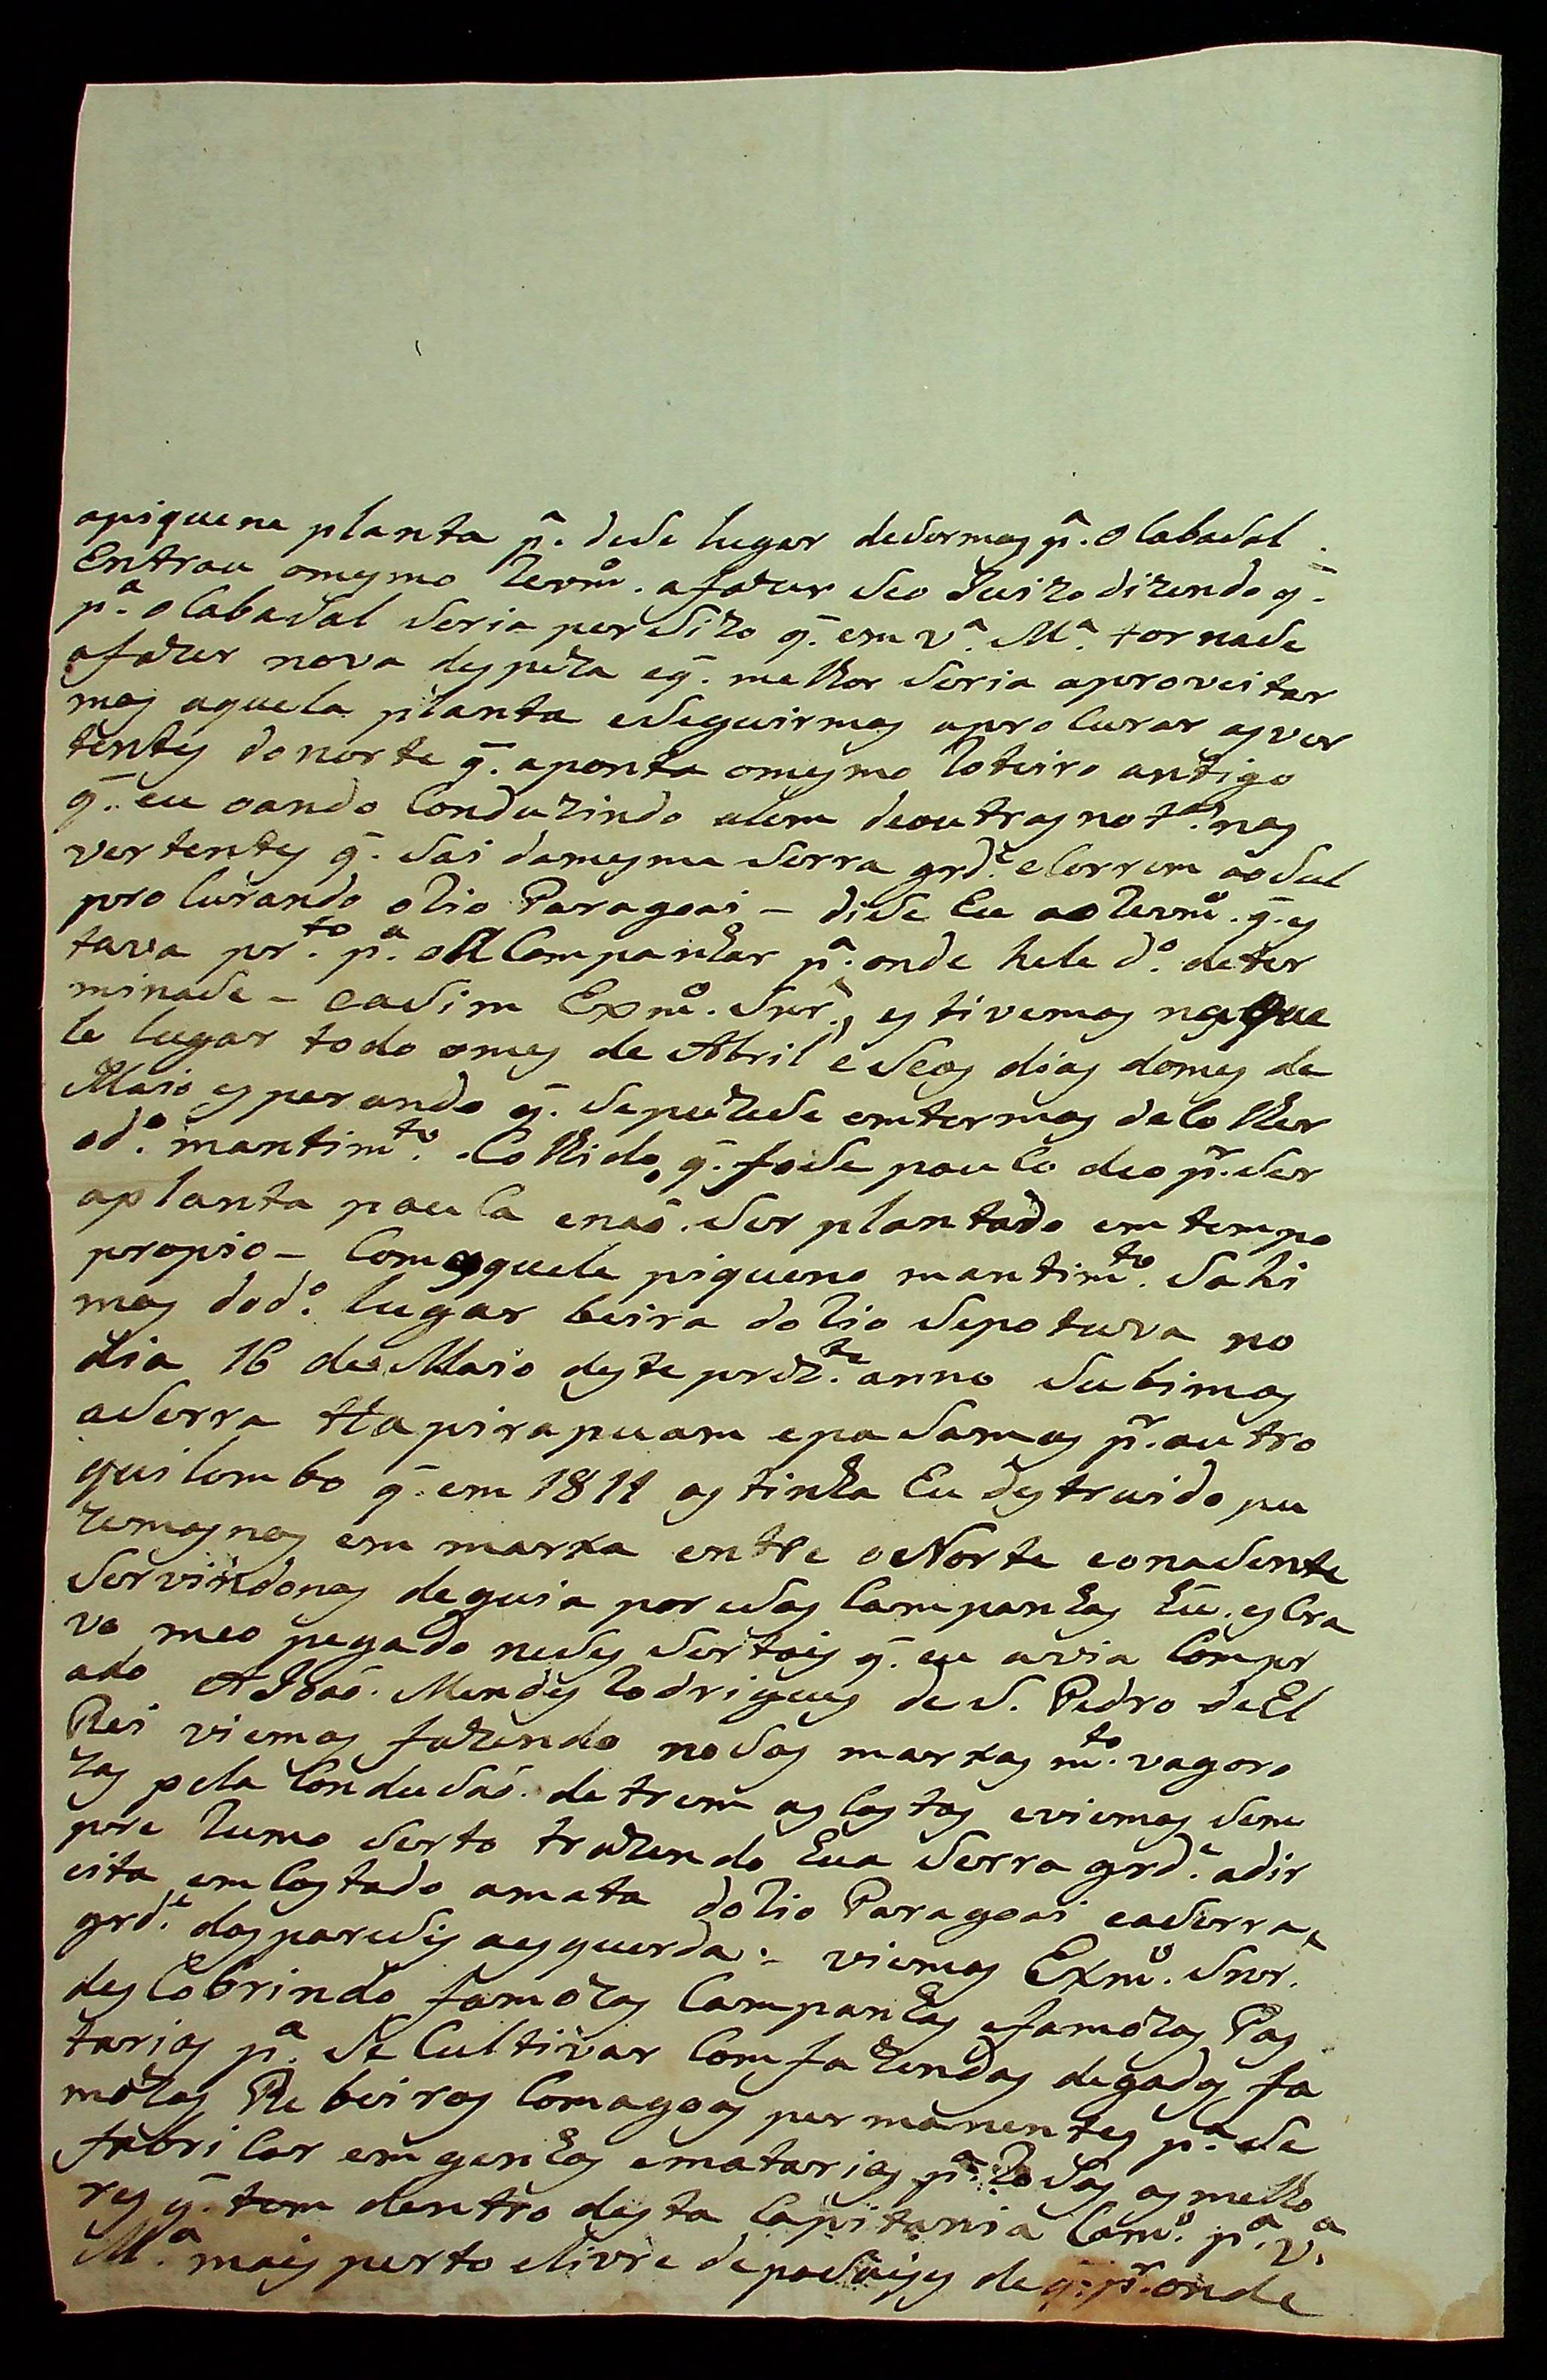 apiquena planta pª. dese lugar desermos pª. o Cabasal.
Entrou omesmo Revmº. afazer seo Juizo dizendo q̃.
pª. o Cabasal seria persizo q̃. em Vª. Mª. tornase
afazer nova despeza eq̃. melhor seria aproveitar
mos aquela planta eseguirmos aprocurar asver
tentes donorte q̃. aponta omesmo Roteiro antigo
q̃. eu oando Conduzindo alem deoutras not.as nas
vertentes q̃. sai damesma serra grd.e eCorrem aosul
procurando oRio Paragoai – dise Eu aoRevmº. q̃. es
tava pr.to pª. oACompanhar pª. onde hele dº. deter
minase – easim Exmº. Snr., estivemos naque
le lugar todo omes de Abril e seos dias domes de
Maio esperando q̃. sepuzese emtermos deColher
odº. mantim.to Colhido, q̃. fose pouco deo pr. ser
aplanta pouca enaõ. ser plantado em tempo
propio – Comaquele piqueno mantim.to Sahi
mos dodº. lugar beira doRio Sepotuva no
dia 16 de Maio deste prez.te anno Subimos
aSerra Itapirapuam epasamos pr. outro
quilombo q̃. em 1811 os tinha Eu destruido pu
zemosnos em marxa entre oNorte eonasente
Servindonos deguia por esas Campanhas hũ. escra
vo meo pegado neses Sertois q̃. eu avia Compr
ado A Joaõ. Mendes Rodrigues de S. Pedro deEl
Rei viemos fazendo nosas marxas m.to vagoro
zas pela Condusaõ. detrem as Costas eviemos sem
pre Rumo serto trazendo hua Serra grd.e adir
eita emCostado amata doRio Paragoai eaSerra
grd.e dosparesis aesquerda. – viemos Exmº. Snr.
desCobrindo famozas Campanhas efamozos Pas
tarios pª. se Cultivar Comfazendas degados, fa
mozas Rebeiras Comagoas permanentes pª. se
fabricar emgenhos ematarias pª. Rosas asmelho
res q̃. tem dentro desta Capitania Camº. pª. Vª.
Mª. mais perto elivre depasaiges de q̃. pr. onde